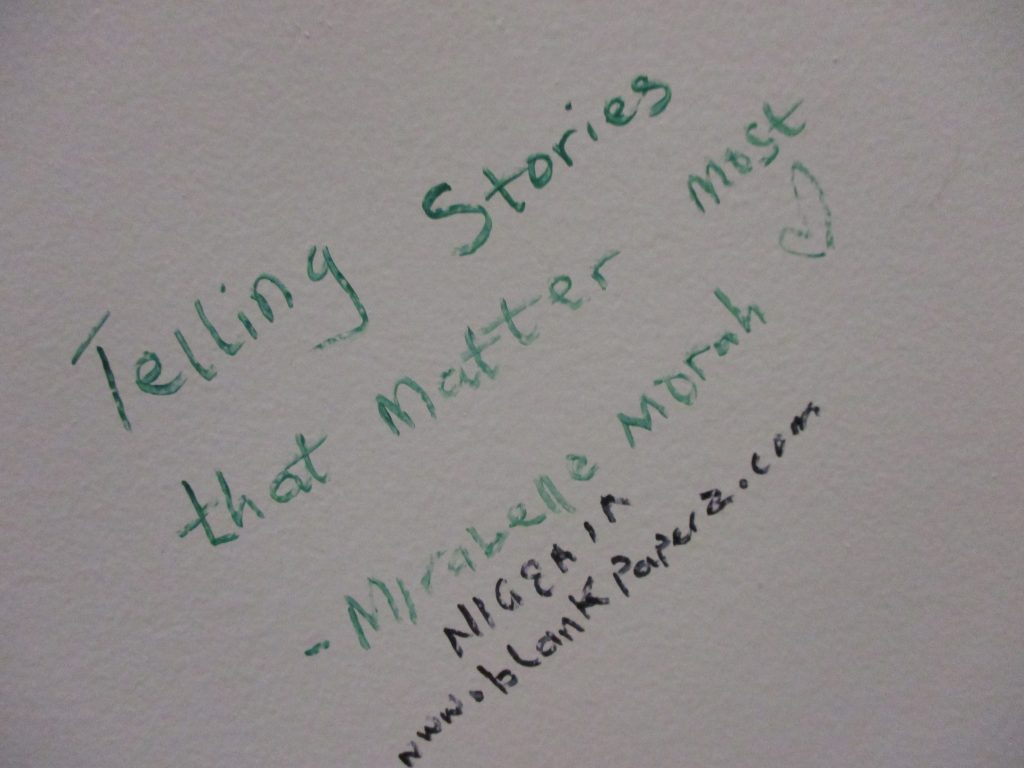 Telling Stories
that Matter Most
- Mirabelle Morah
NIGERIA
www.blankpaperz.com